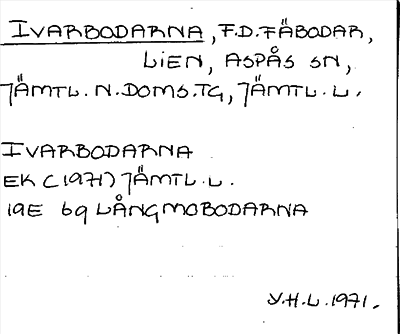 IVARBODARNA, F.D. FÄBODAR,
LIEN, ASPÅS SN,
JÄMTL. N. DOMS. TG, JÄMTL. L.
IVARBODARNA
EK (1971) JÄMTL. L.
19E 6g LÅNGMOBODARNA
Y.H.L. 1971.